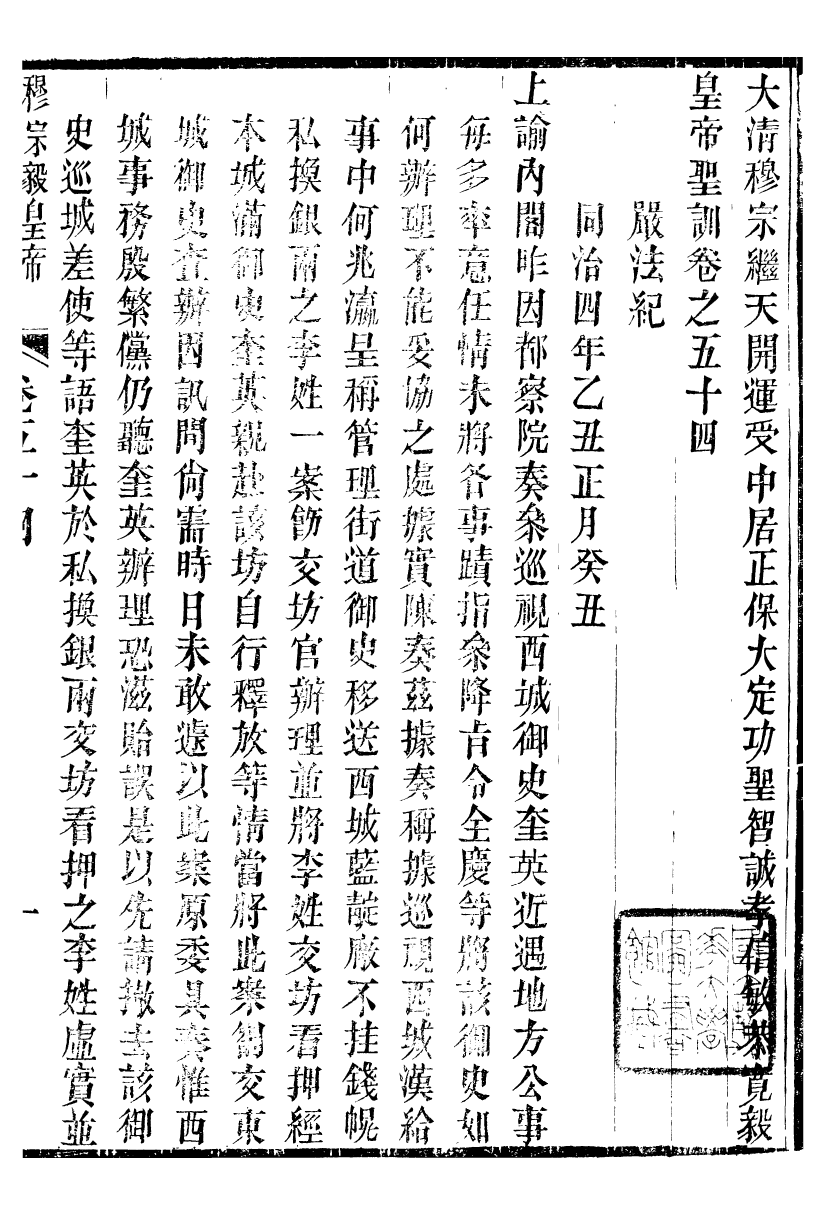 大清穆宗繼天開運受中居正保大定功聖智誠孝信敏恭寬毅
皇帝聖訓卷之五十四
嚴法紀
同治四年乙丑正月癸丑
上諭內閣昨因都察院奏叅巡視西城御史奎英近遇地方公事
每多率意任情未將各事蹟指叅降旨令全慶等將該御史如
何辦理不能妥協之處據實陳奏茲據奏稱據巡視西城漢給
事中何兆瀛呈稱管理街道御史移送西城藍靛廠不挂錢幌
私換銀兩之李姓一案飭交坊官辦理並將李姓交坊看押經
本城滿御史奎英親赴該坊自行釋放等情當將此案劄交東
城御史查辦因訊問尙需時日未敢遽以此案原委具奏惟西
城事務殷繁儻仍聽奎英辦理恐滋貽誤是以先請撤去該御
史巡城差使等語奎英於私換銀兩交坊看押之李姓虛實並
穆宗毅皇帝 卷五十四 一